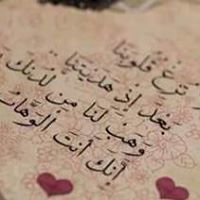 تزغ قلوبنا
بعد إذ هديتنا
وهب لنا من لدنك
أنك أنت الوهاب